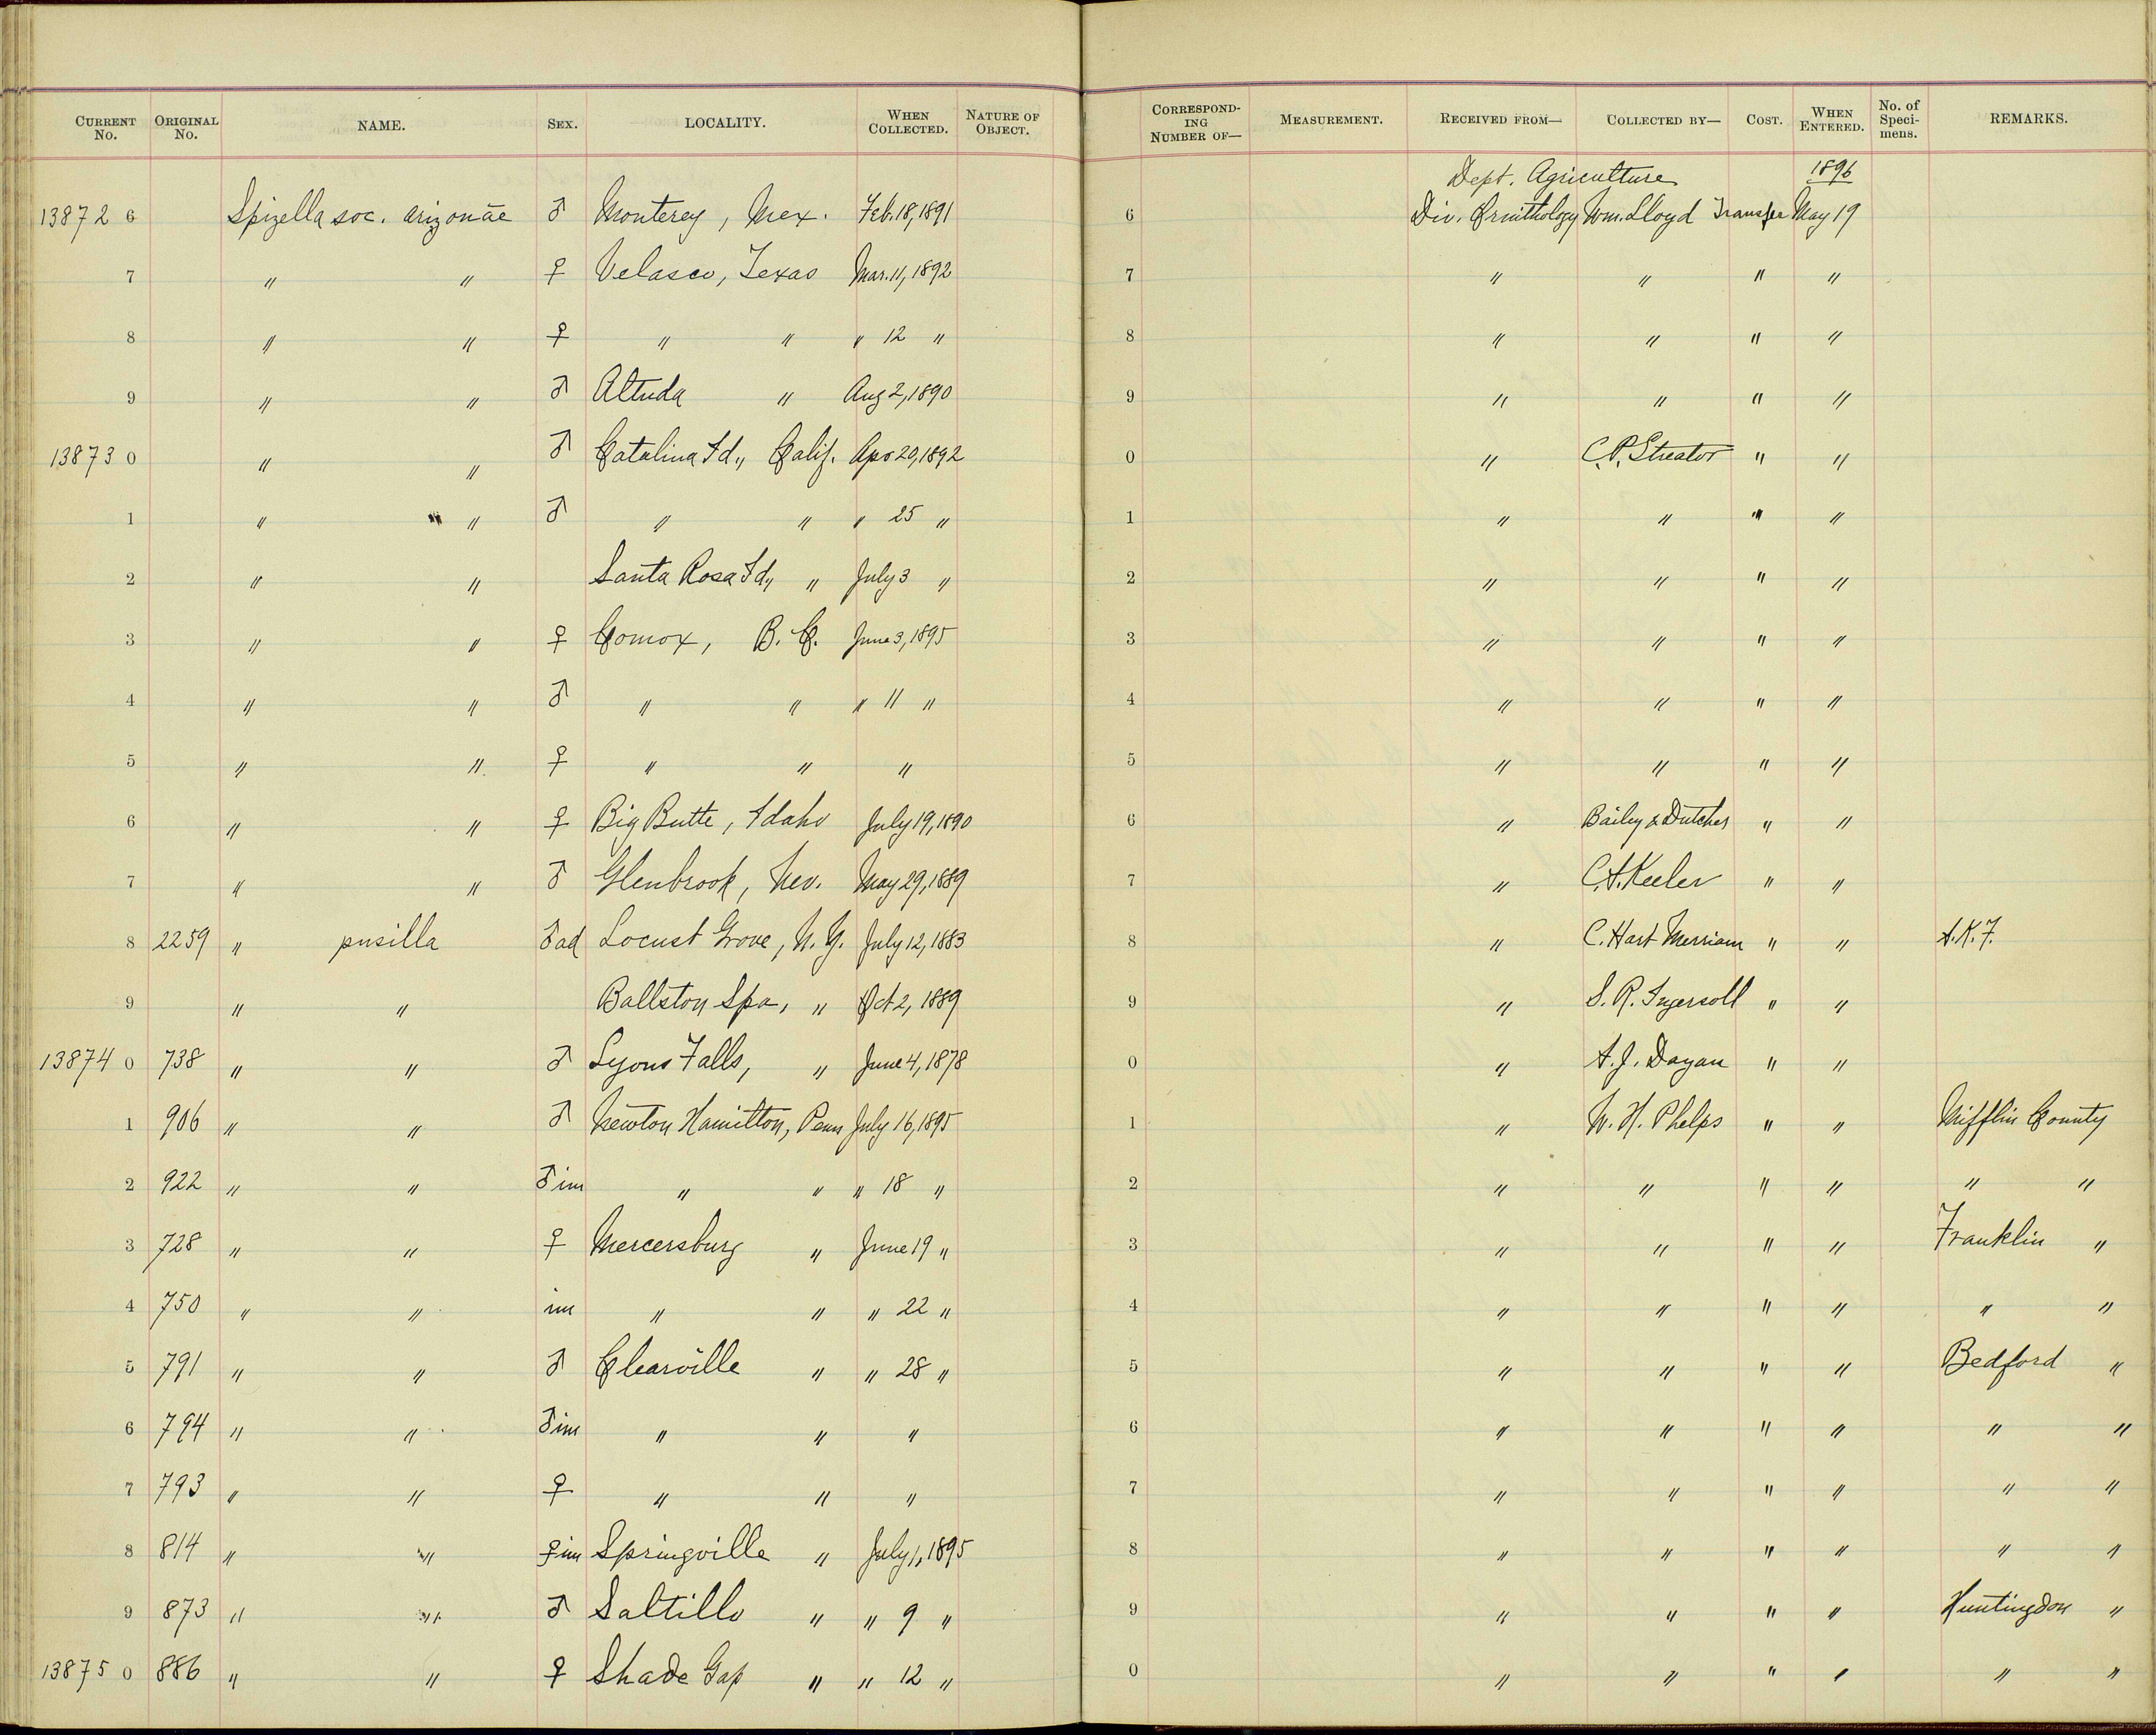 CURRENT No. ORIGINAL No. NAME. SEX. LOCALITY. WHEN COLLECTED. NATURE OF OBJECT. CORRESPONDING NUMBER OF— MEASUREMENT. RECEIVED FROM— COLLECTED BY— COST. WHEN ENTERED. No. of Specimens. REMARKS.
Dept. Agriculture 1896
13872 6 Spizella soc. arizonae ♂ Monterey, Mex. Feb. 18, 1891 6 Div. Ornithology Wm. Lloyd Transfer May 19
7 " " ♀ Velasco, Texas Mar. 11, 1892 7 " " " "
8 " " ♀ " " " 12 " 8 " " " "
9 " " ♂ Altuda " Aug 2, 1890 9 " " " "
13873 0 " " ♂ Catalina Id., Calif. Apr 20, 1892 0 " C.P. Streator " "
1 " " ♂ " " " 25 " 1 " " " "
2 " " Santa Rosa Id., " July 3 " 2 " " " "
3 " " ♀ Comox, B. C. June 3, 1895 3 " " " "
4 " " ♂ " " " 11 " 4 " " " "
5 " " ♀ " " " 5 " " " "
6 " " ♀ Big Butte, Idaho July 19, 1890 6 " Bailey & Dutcher " "
7 " " ♂ Glenbrook, Nev. May 29, 1889 7 " C.A. Keeler " "
8 2259 " pusilla ♂ ad Locust Grove, N. Y. July 12, 1883 8 " C. Hart Merriam " " A.K.F.
9 " " Ballston Spa, " Oct 2, 1889 9 " S. R. Ingersoll " "
13874 0 738 " " ♂ Lyons Falls, " June 4, 1878 0 " A. J. Dayan " "
1 906 " " ♂ Newton Hamilton, Penn July 16, 1895 1 " W. H. Phelps " " Mifflin County
2 922 " " ♂ im " " " 18 " 2 " " " " " "
3 728 " " ♀ Mercersburg " June 19 " 3 " " " " Franklin "
4 750 " " im " " " 22 " 4 " " " " " "
5 791 " " ♂ Clearville " " 28 " 5 " " " " Bedford "
6 794 " " ♂ im " " " 6 " " " " " "
7 793 " " ♀ " " " 7 " " " " " "
8 814 " " ♀ im Springville " July 1, 1895 8 " " " " " "
9 873 " " ♂ Saltillo " " 9 " 9 " " " " Huntingdon "
13875 0 886 " " ♀ Shade Gap " " 12 " 0 " " " " " "